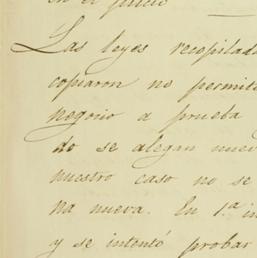 en el juicio
Las leyes recopilad
copiaron no permit
negocio a prueba
do se alegan nuev
nuestro caso no se
na nueva. En 1.ª in
y se intentó probar